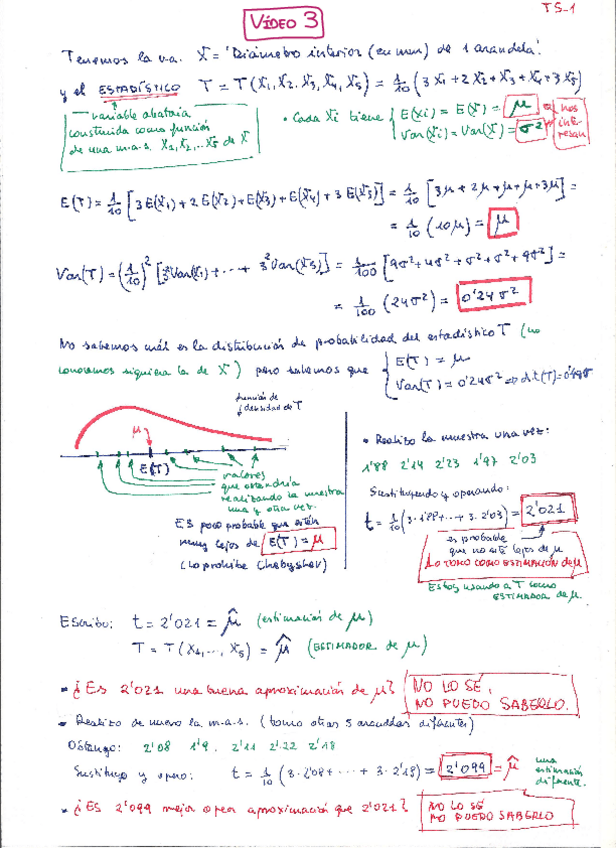 T5-1
VÍDEO 3
Tenemos la v.a. X = "Diámetro interior (en mm) de 1 arandela".
y el ESTADÍSTICO T = T(X1, X2, X3, X4, X5) = 1/10 (3X1 + 2X2 + X3 + X4 + 3X5)
variable aleatoria
construida como función
de una m.a.s. X1, X2, ... X5 de X
• Cada Xi tiene { E(Xi) = E(X) = μ
Var(Xi) = Var(X) = σ²
nos interesan
E(T) = 1/10 [3E(X1) + 2E(X2) + E(X3) + E(X4) + 3E(X5)] = 1/10 [3μ + 2μ + μ + μ + 3μ] =
= 1/10 (10μ) = μ
Var(T) = (1/10)² [3²Var(X1) + ... + 3²Var(X5)] = 1/100 [9σ² + 4σ² + σ² + σ² + 9σ²] =
= 1/100 (24σ²) = 0'24σ²
No sabemos cuál es la distribución de probabilidad del estadístico T (no
conocemos siquiera la de X) pero sabemos que { E(T) = μ
Var(T) = 0'24σ² ⇒
función de
densidad de T
μ
E(T)
valores
que obtendría
realizando la muestra
una y otra vez.
Es poco probable que estén
muy lejos de E(T) = μ
(Lo prohíbe Chebyshev)
• Realizo la muestra una vez:
1'88 2'14 2'23 1'97 2'03
Sustituyendo y operando:
t = 1/10 (3·1'88 + ... + 3·2'03) = 2'021
es probable
que no esté lejos de μ
LO TOMO COMO ESTIMACIÓN DE μ
Estoy usando a T como
ESTIMADOR DE μ.
Escribo: t = 2'021 = μ̂ (estimación de μ)
T = T(X1, ..., X5) = μ̂ (ESTIMADOR de μ)
• ¿Es 2'021 una buena aproximación de μ? NO LO SÉ,
NO PUEDO SABERLO.
• Realizo de nuevo la m.a.s. (tomo otras 5 arandelas diferentes)
Obtengo: 2'08 1'9 2'11 2'22 2'18
Sustituyo y opero: t = 1/10 (3·2'08 + ... + 3·2'18) = 2'099 = μ̂
una
estimación
diferente.
• ¿Es 2'099 mejor o peor aproximación que 2'021? NO LO SÉ
NO PUEDO SABERLO